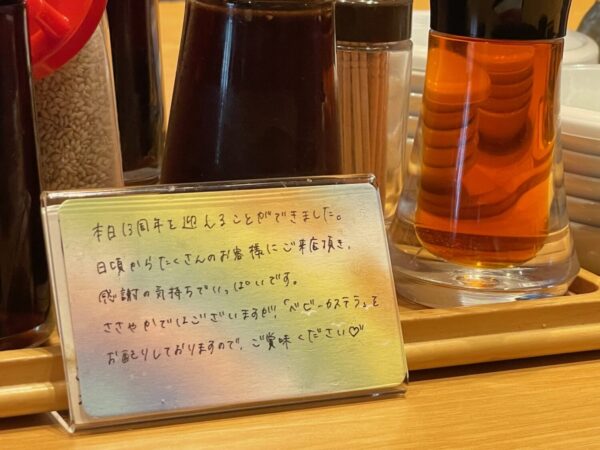 本日13周年を迎えることができました。
日頃からたくさんのお客様にご来店頂き、
感謝の気持ちでいっぱいです。
ささやかではございますが、「ベビーカステラ」を
お配りしておりますので、ご賞味ください♡